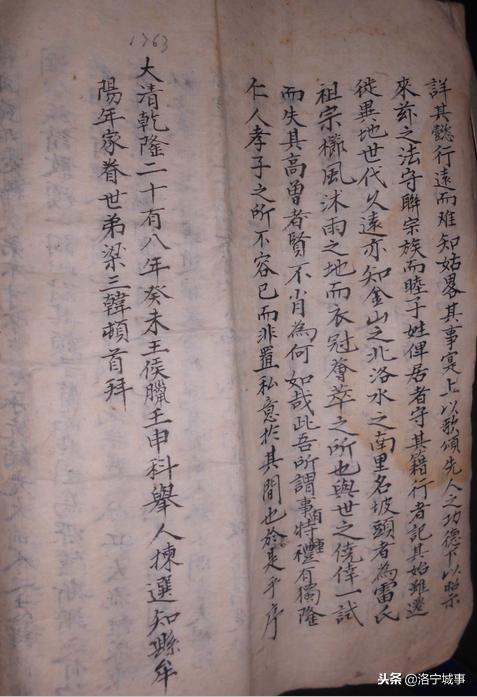 詳其懿行遠而难知姑畧其事寔上以歌頌先人之功德下以昭示
來茲之法守聯宗族而睦子姓俾居者守其籍行者記其始雖遷
徙異地世代久遠亦知金山之北洛水之南里名坡頭者為雷氏
祖宗櫛風沐雨之地而衣冠薈萃之所也與世之侥倖一試
而失其高曾者賢不肖為何如哉此吾所謂事特禮有獨隆
仁人孝子之所不容已而非置私意扵其間也於是乎序
1763
大清乾隆二十有八年癸未王侯臘壬申科舉人揀選知縣年
陽年家眷世弟梁三韓頓首拜
头条 @洛宁城事